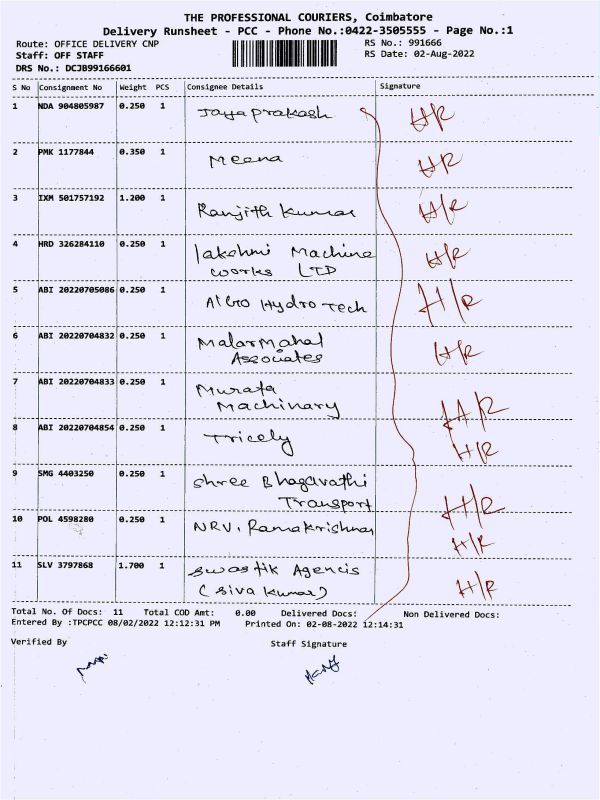 THE PROFESSIONAL COURIERS, Coimbatore
Delivery Runsheet - PCC - Phone No.:0422-3505555 - Page No.:1
Route: OFFICE DELIVERY CNP RS No.: 991666
Staff: OFF STAFF RS Date: 02-Aug-2022
DRS No.: DCJB99166601
S No Consignment No Weight PCS Consignee Details Signature
1 NDA 904805987 0.250 1 Jayaprakash H/R
2 PMK 1177844 0.350 1 Meena H/R
3 IXM 501757192 1.200 1 Ranjith Kumar H/R
4 HRD 326284110 0.250 1 Lakshmi Machine H/R
works LTD
5 ABI 20220705086 0.250 1 Albo Hydro Tech H/R
6 ABI 20220704832 0.250 1 Malarmahal H/R
Associates
7 ABI 20220704833 0.250 1 Murata
Machinary H/R
8 ABI 20220704854 0.250 1 Tricely H/R
9 SMG 4403250 0.250 1 Shree Bhagavathi
Transport H/R
10 POL 4598280 0.250 1 NRV. Ramakrishnan H/R
11 SLV 3797868 1.700 1 Swastik Agencis
(Siva Kumar) H/R
Total No. Of Docs: 11 Total COD Amt: 0.00 Delivered Docs: Non Delivered Docs:
Entered By :TPCPCC 08/02/2022 12:12:31 PM Printed On: 02-08-2022 12:14:31
Verified By Staff Signature